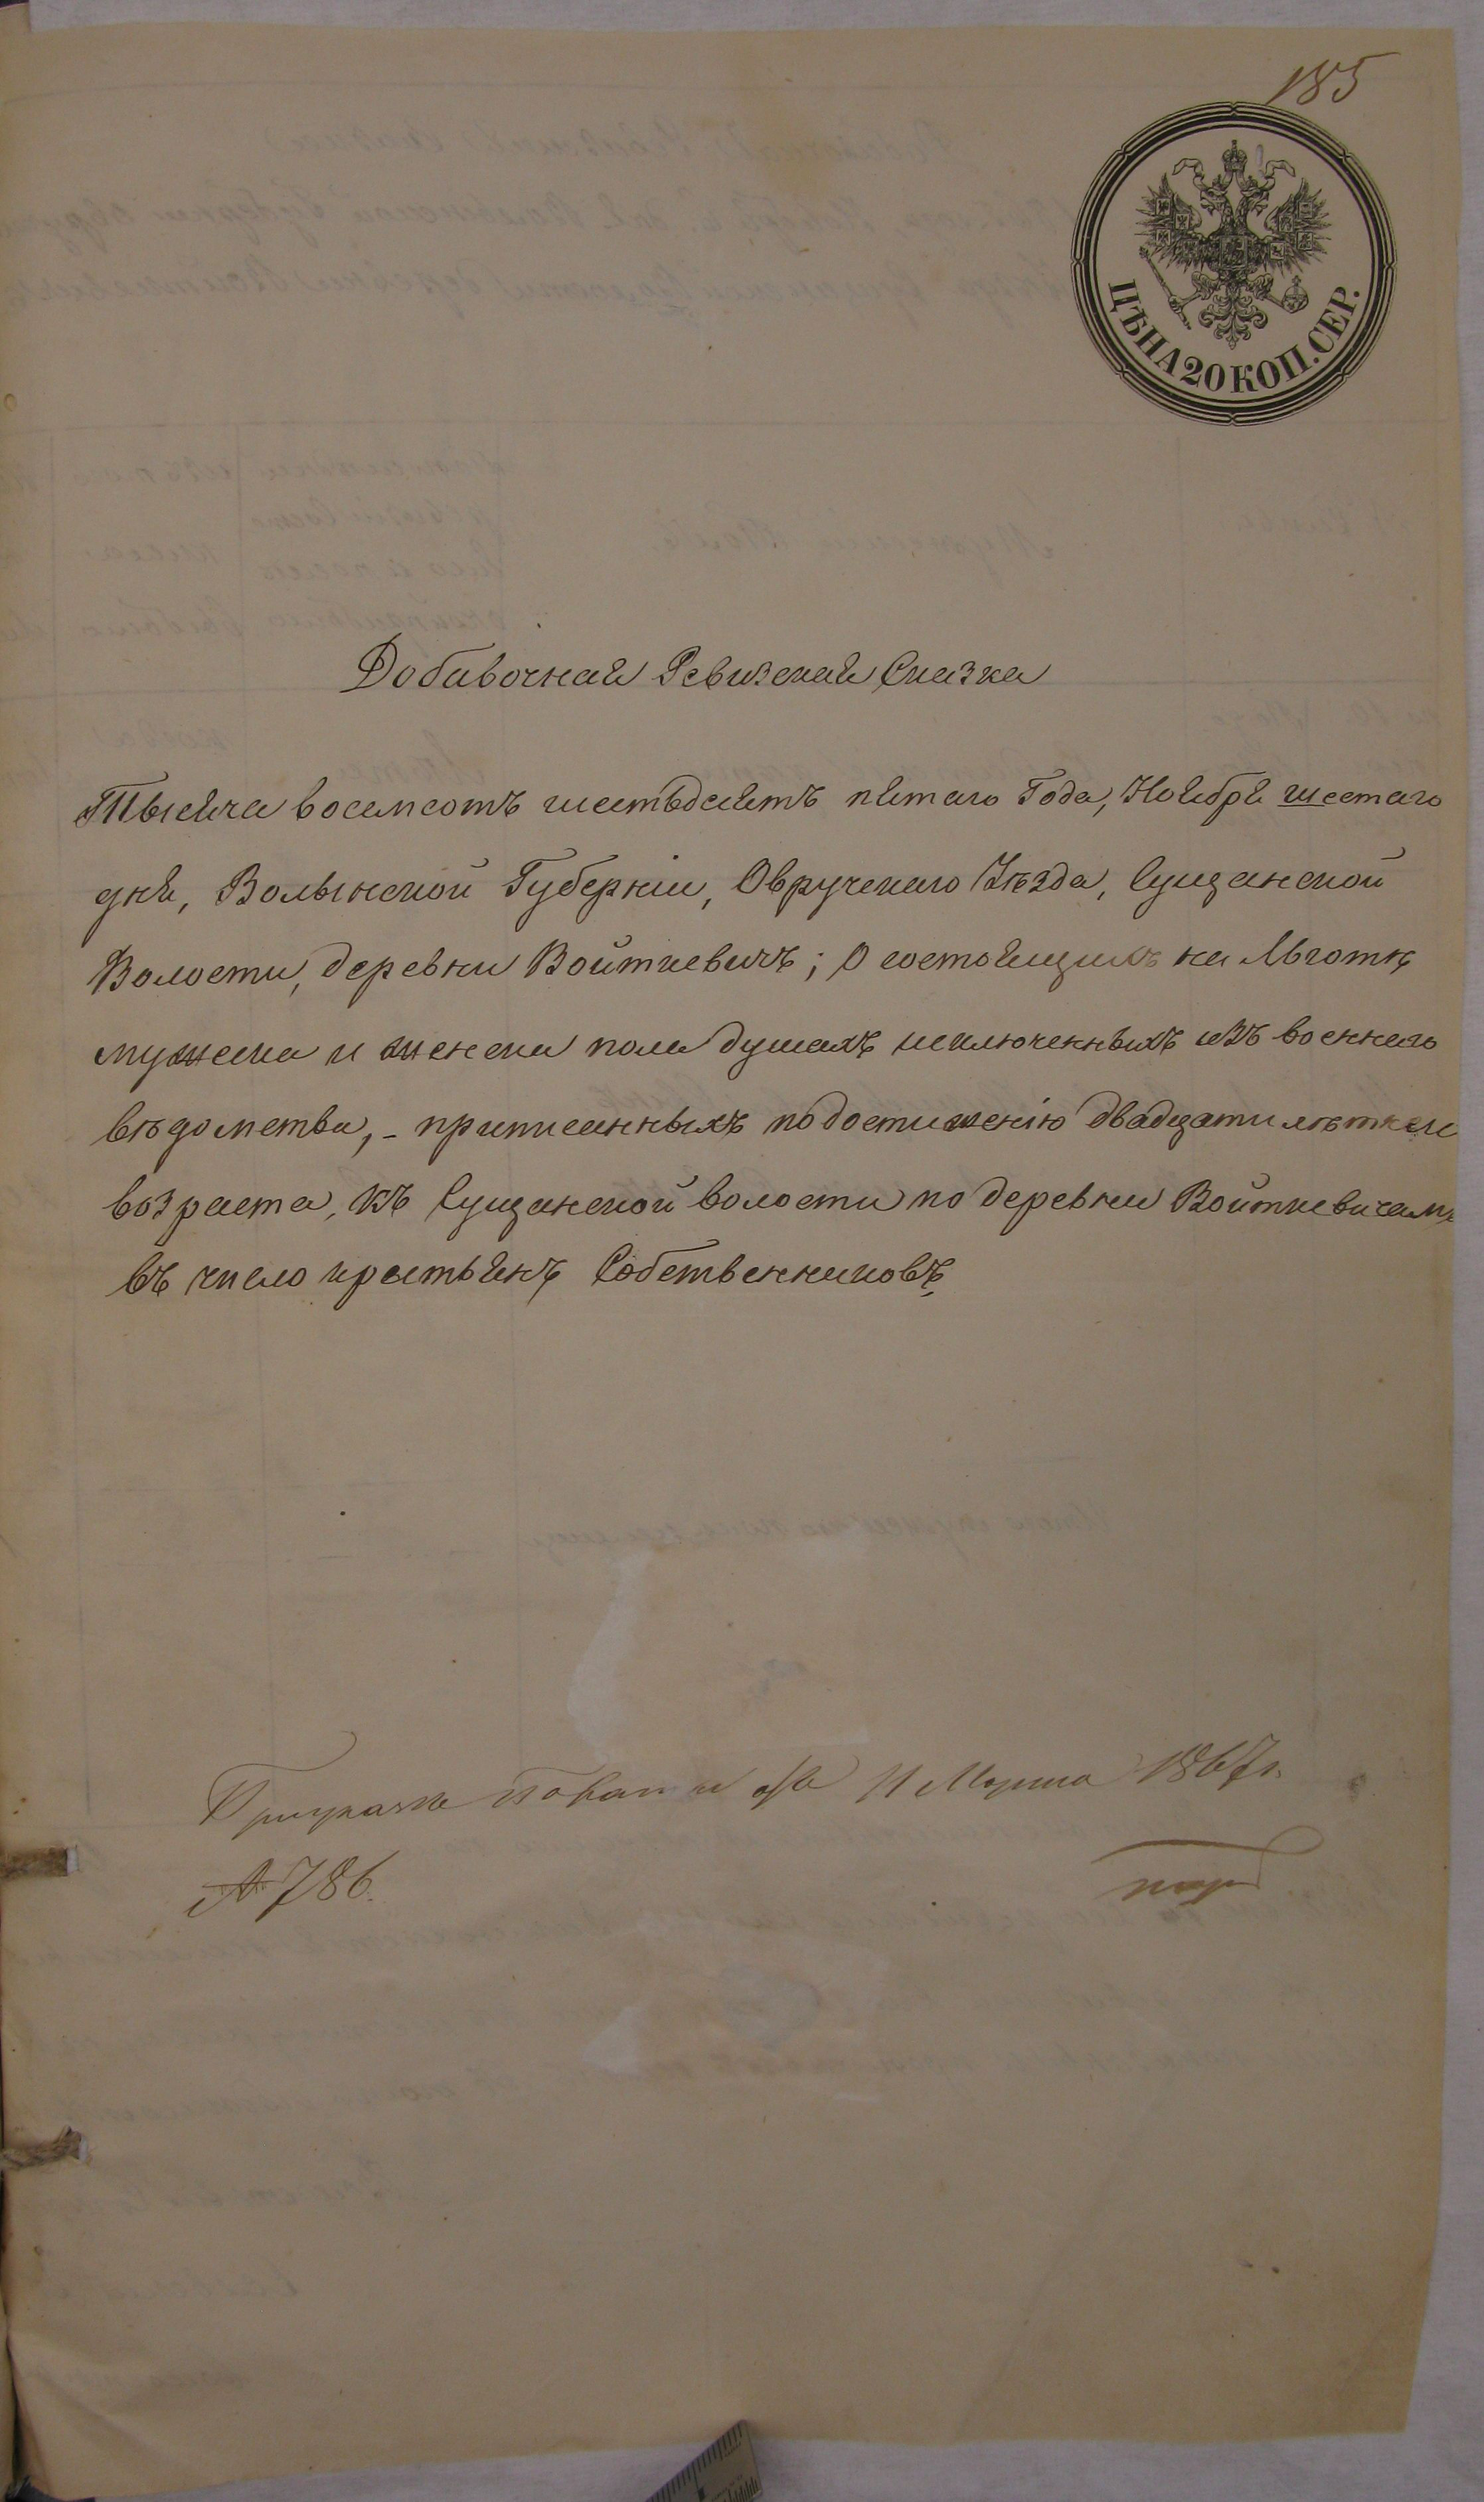 185
ЦѢНА 20 КОП. СЕР.
Добавочная Ревизская Сказка
Тысяча восемсотъ шестьдсятъ пятаго Года, Ноября шестаго
дня, Волынской Губерніи, Овручскаго Уѣзда, Сущанской
Волости, деревни Войткевичъ; О состоящихъ на Льготѣ
мужска и женска пола душахъ исключенныхъ изъ военнаго
вѣдомства, - приписанныхъ по достиженію двадцатилѣтняго
возраста, къ Сущанской волости по деревни Войткевичамъ
въ число крестьянъ Собственниковъ.
При указѣ Палаты 11 Марта 1867 г.
№ 786.